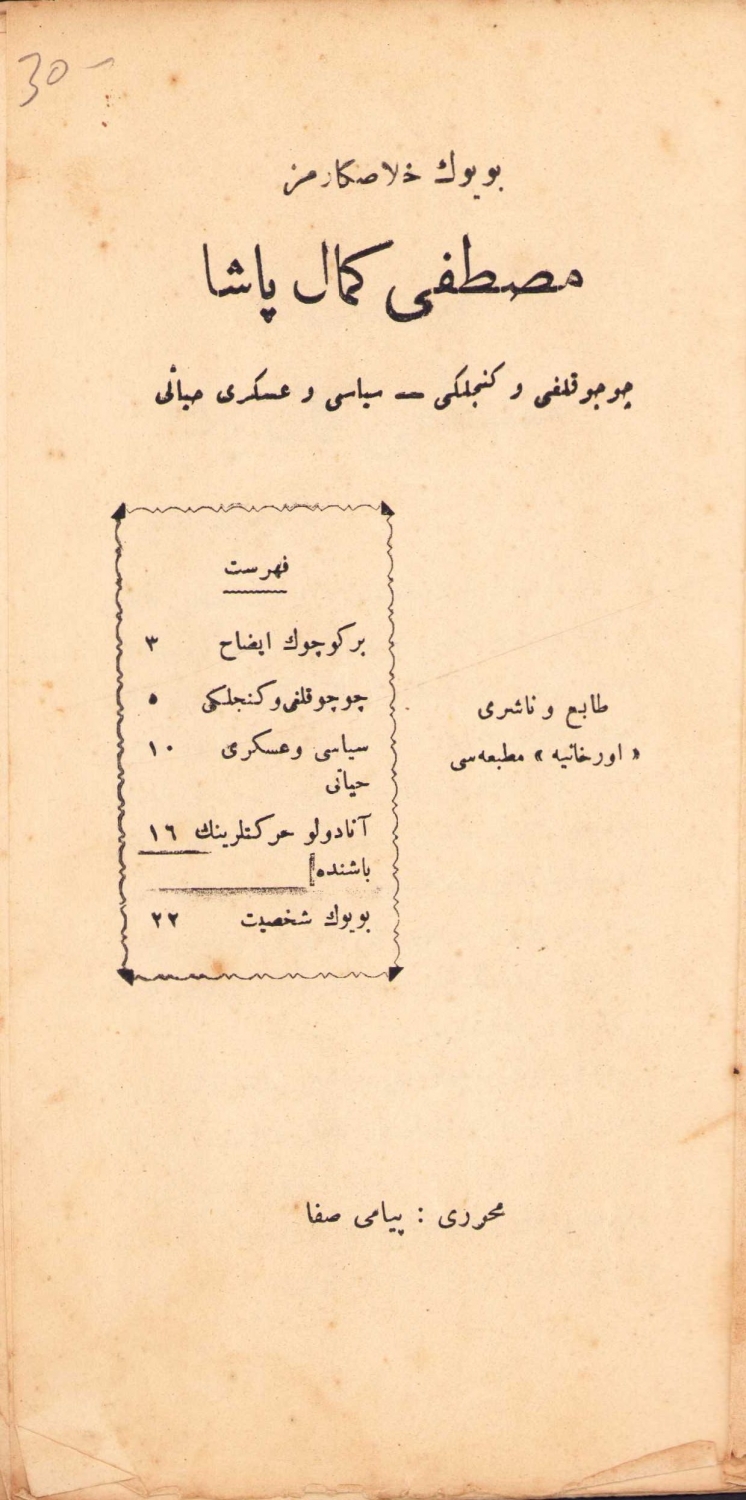 30 -
بویوك خلاصكارمز
مصطفی كمال پاشا
چوجوقلغی و كنجلكی — سیاسی و عسكری حیاتی
فهرست
بركوچوك ایضاح ٣
چوجوقلغی وكنجلكی ٥
سیاسی وعسكری ١٠
حیاتی
آنادولو حركتلرینك ١٦
باشنده
بویوك شخصیت ٢٢
طابع و ناشری
« اورخانیه » مطبعه‌سی
محرری : پیامی صفا